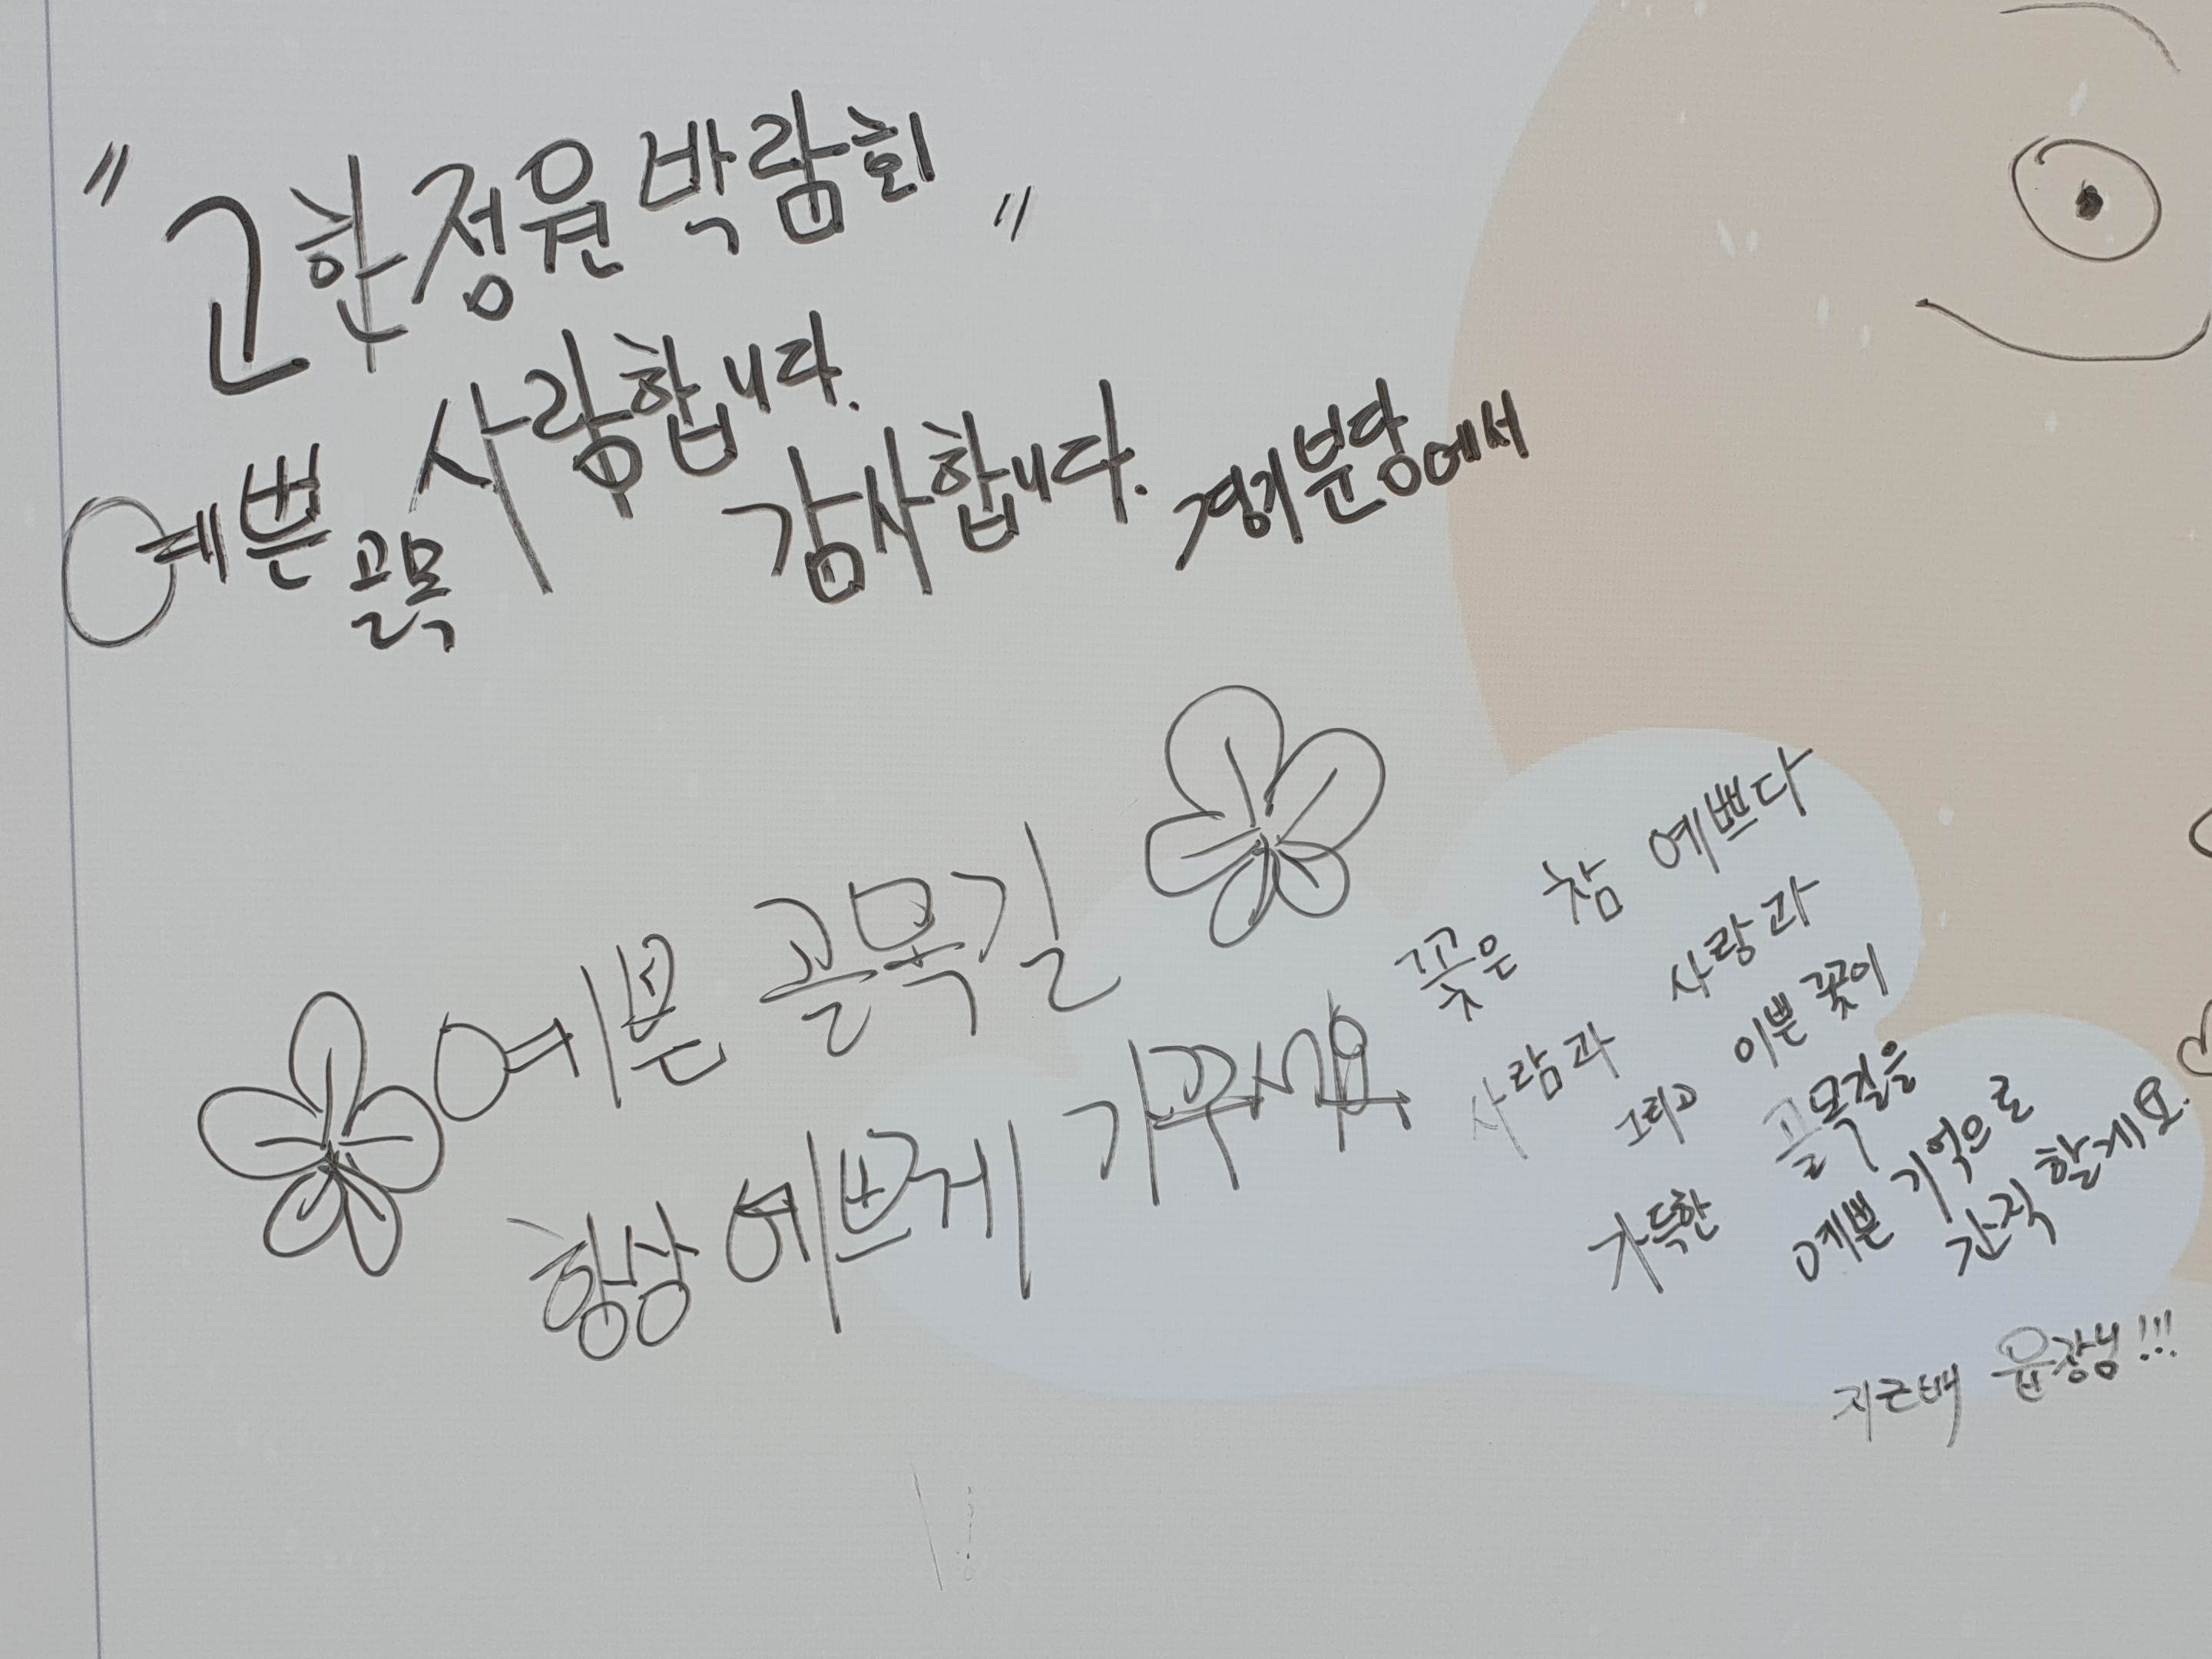 "고한 정원 박람회"
사랑합니다.
예쁜 골목
감사합니다. 경기분당에서
예쁜 골목길
항상 예쁘게 가꾸세요
꽃은 참 예쁘다
사람과 사랑과
그리고 이쁜 꽃이
가득한 골목길을
예쁜 기억으로
간직 할게요.
지근배 윤장님!!!